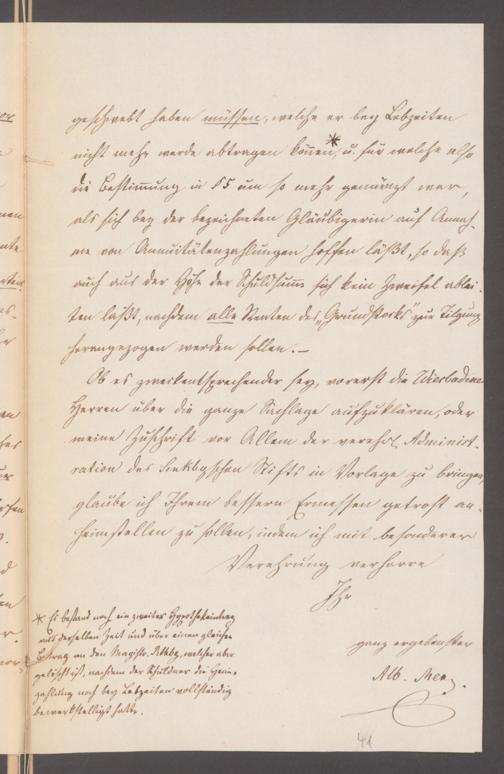 geschwebt haben müssen, welche er bey Lebzeiten
nicht mehr werde abtragen können*, u. für welche also
die Bestimmung in §5 um so mehr gemünzt war,
als sich bey der bezeichneten Gläubigerin auf Annah-
me von Annuitätenzahlungen hoffen läßt, so daß
auch aus der Höhe der Schuldsumme sich kein Zweifel ablei-
ten läßt, nachdem alle Renten des „Grundstocks“ zur Tilgung
herangezogen werden sollen. —
Ob es zweckentsprechender sey, vorerst die Wiesbadener
Herren über die ganze Sachlage aufzuklären, oder
meine Zuschrift vor Allem der verehrl. Administ-
ration des Stifts in Vorlage zu bringen,
glaube ich Ihrem bessern Ermessen getrost an-
heimstellen zu sollen, indem ich mit besonderer
Verehrung verharre
Ihr
ganz ergebenster
Alb.
* Es bestand noch ein zweiter Hypothekeintrag
aus derselben Zeit und über einen gleichen
Betrag an den Magistr. welcher aber
gelöscht ist, nachdem der Schuldner die Heim-
zahlung noch bey Lebzeiten vollständig
bewerkstelligt hatte.
41